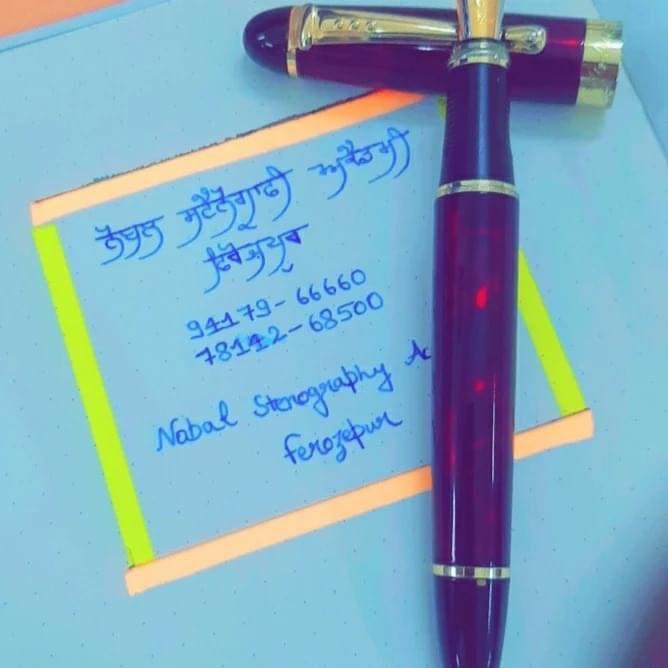 ਨੋਬਲ ਸਟੈਨੋਗ੍ਰਾਫੀ ਅਕੈਡਮੀ
ਫਿਰੋਜ਼ਪੁਰ
94179-66660
78142-68500
Nobal Stenography Ac
Ferozepur